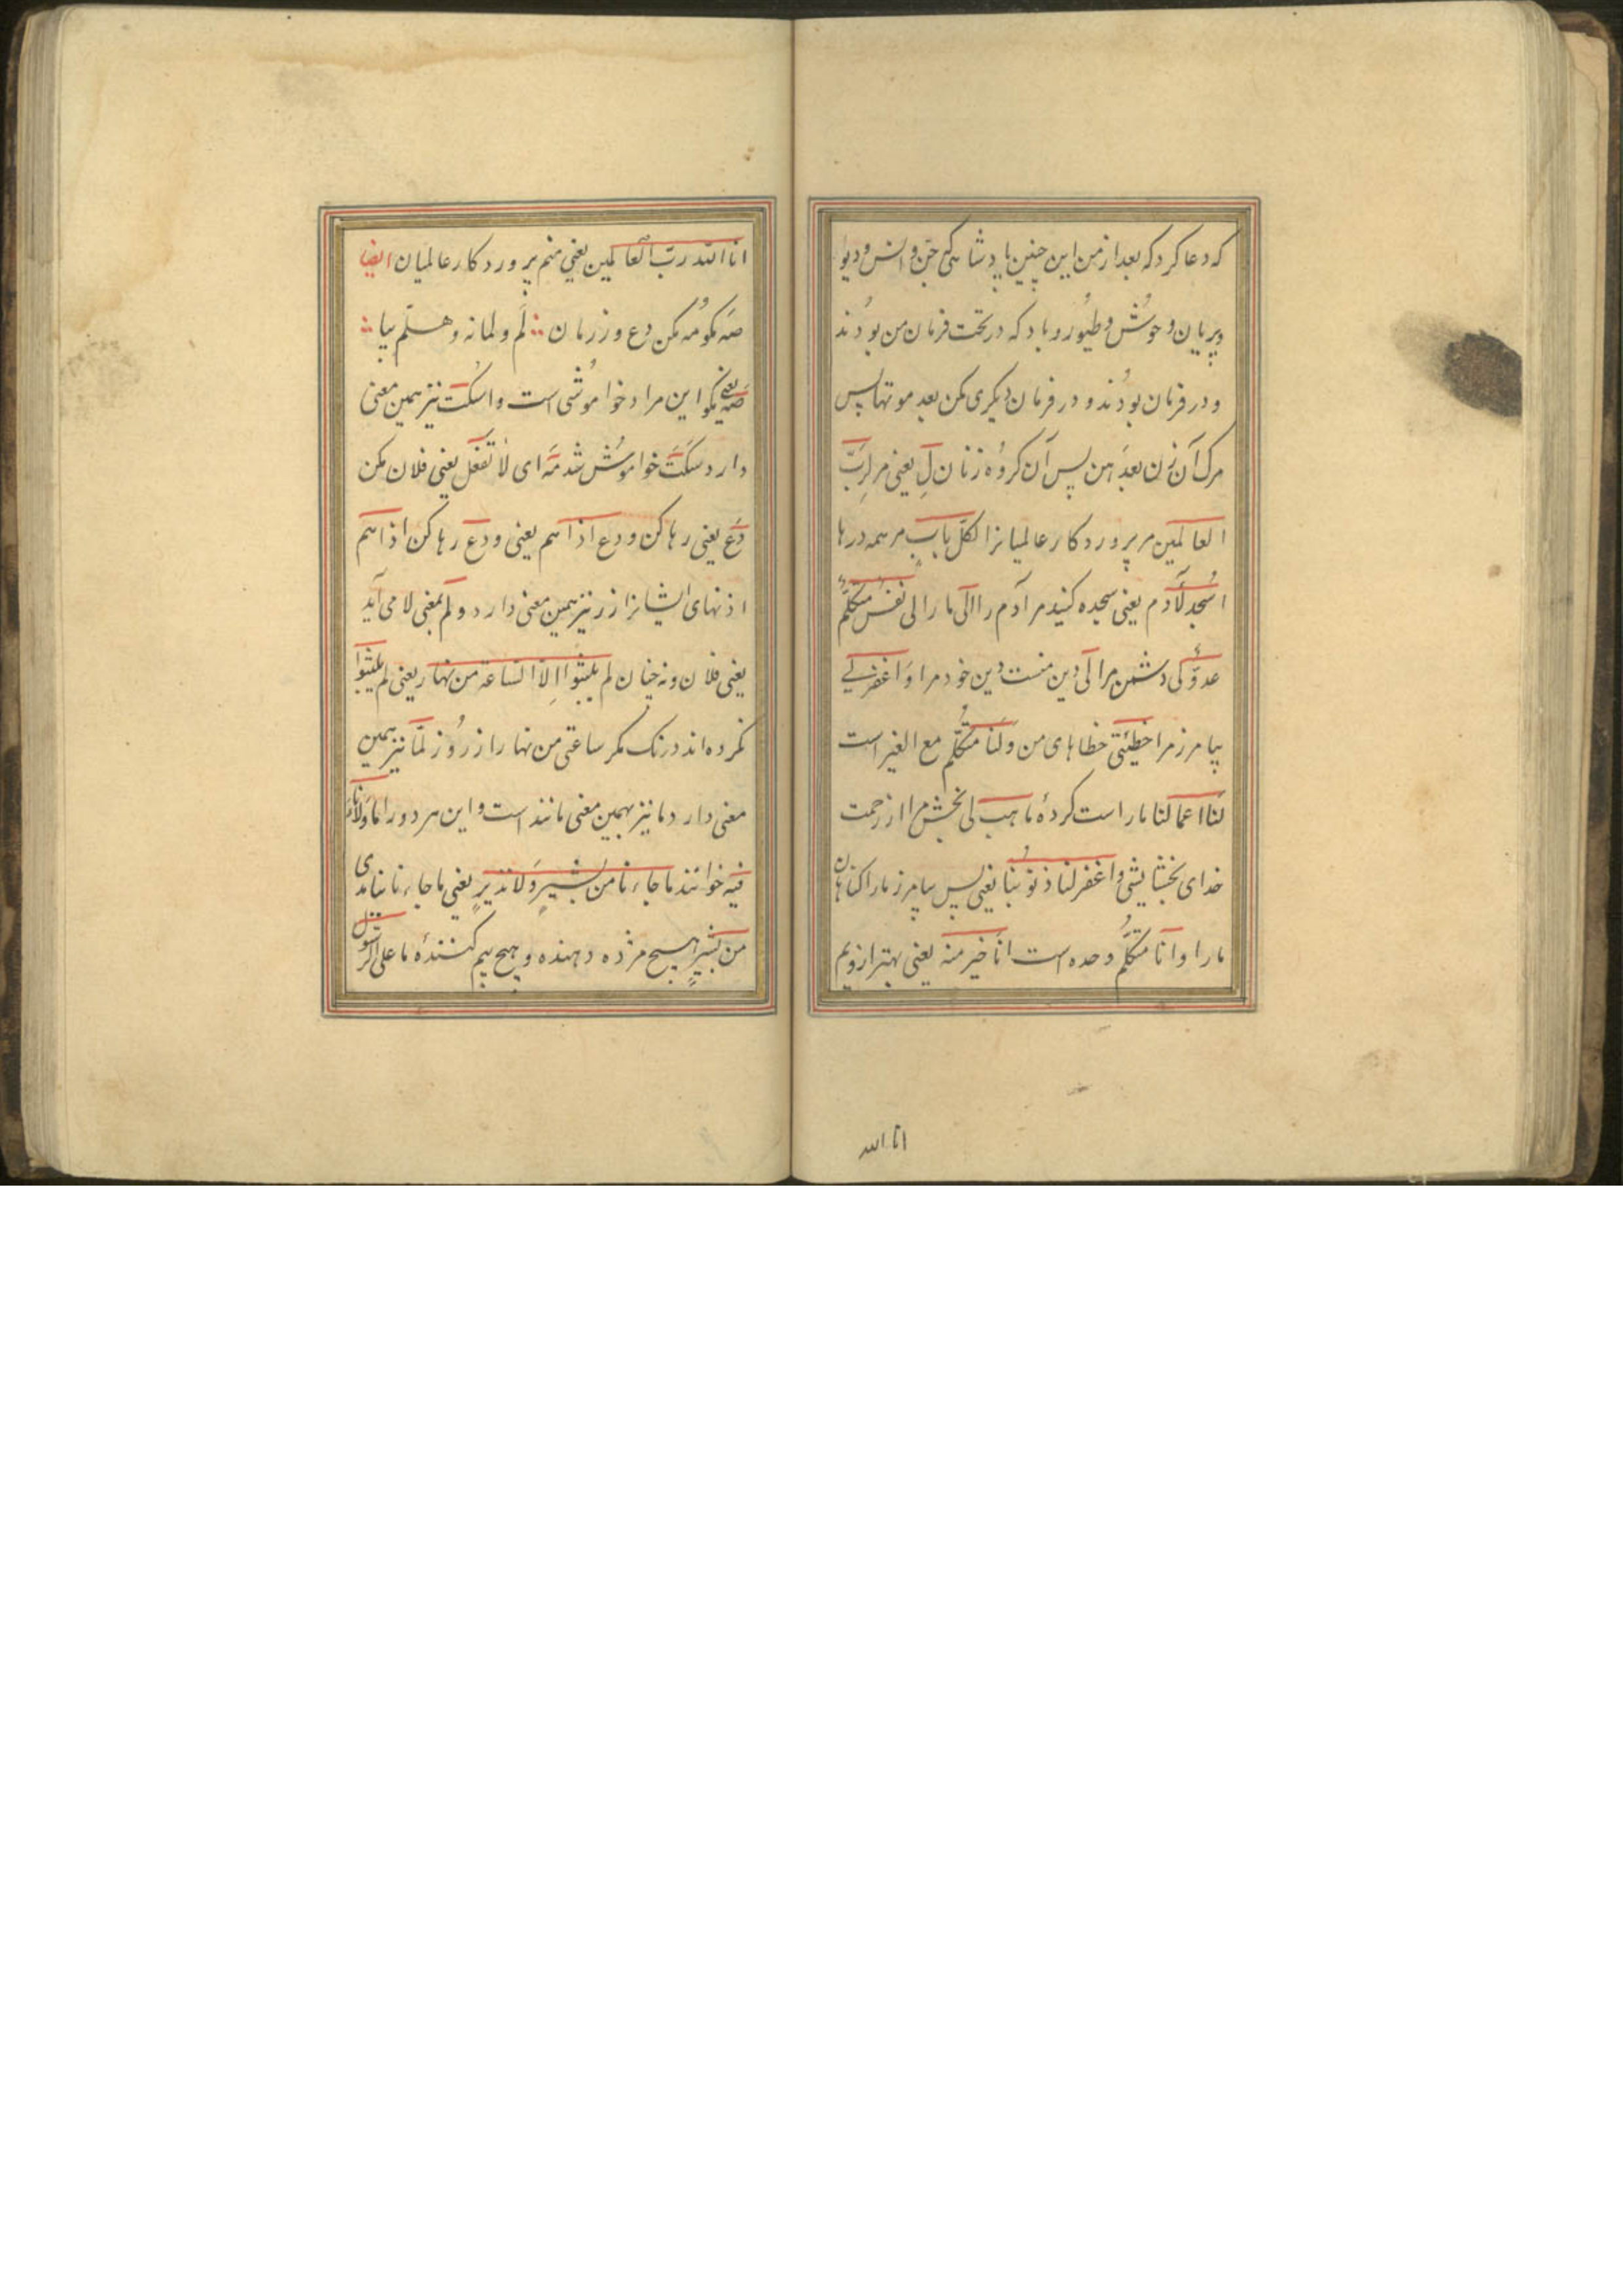 که دعا کرد که بعد از من این چنین پادشاهی جن و انس و دیو
و پریان و حوش و طیور و باد که در تحت فرمان من بودند
و در فرمان بودند و در فرمان دیکری مکن بعد موتها پس
مرک آن زن بعدهن پس آن کروه زنان لِ یعنی مر لِرَبّ
العالمین مر پروردکار عالمیانرا لکلّ بابٍ مر همه درها
اسْجُد لآدم یعنی سجده کنید مر آدم را الیّ ما را لی نفس متکلّم
عدوّ کی دشمن مرا لی دین منست دین خود مرا وَاغفر لی
بیامرز مرا خطیئتی خطاهای من وَلَنا متکلّم مع الغیر است
لَنا اعمالنا ما راست کردهٔ ما هب لی بخش مرا از رحمت
خدای بخشایشی و اغفر لنا ذنوبنا یعنی پس بیامرز ما را کناهان
ما را و اَنا متکلّم وحده است انا خیر منه یعنی بهتر از ویم
انا الله
انا الله ربّ العالمین یعنی منم پروردکار عالمیان ایضا
صَه مکو مُه مکن دع و زر مان لَم و لما نه و هلمّ بیا
صَه یعنی مکو این مراد خواموشی است و اسْکت نیز همین معنی
دارد سکَتَ خواموش شد مَه ای لا تَفعَل یعنی فلان مکن
دَع یعنی رها کن و دع اذاهم یعنی ودع رها کن اذاهم
اذنهای ایشانرا زر نیز همین معنی دارد و لم بمعنی لا می آید
یعنی فلان و نه چنان لم یلبثوا الّا الساعة من نهار یعنی لم یلبثوا
نکرده اند درنک مکر ساعتی من نهار از روز لمّا نیز همین
معنی دارد ما نیز بهمین معنی مانند است و این هر دو را ما وَلا نا
فیه خوانند ما جاءنا من بشیرٍ وَلا نذیرٍ یعنی ما جاءنا نیامدی
من بشیرٍ هیچ مژده دهنده و هیچ بیم کنندهٔ ما علی الرسول